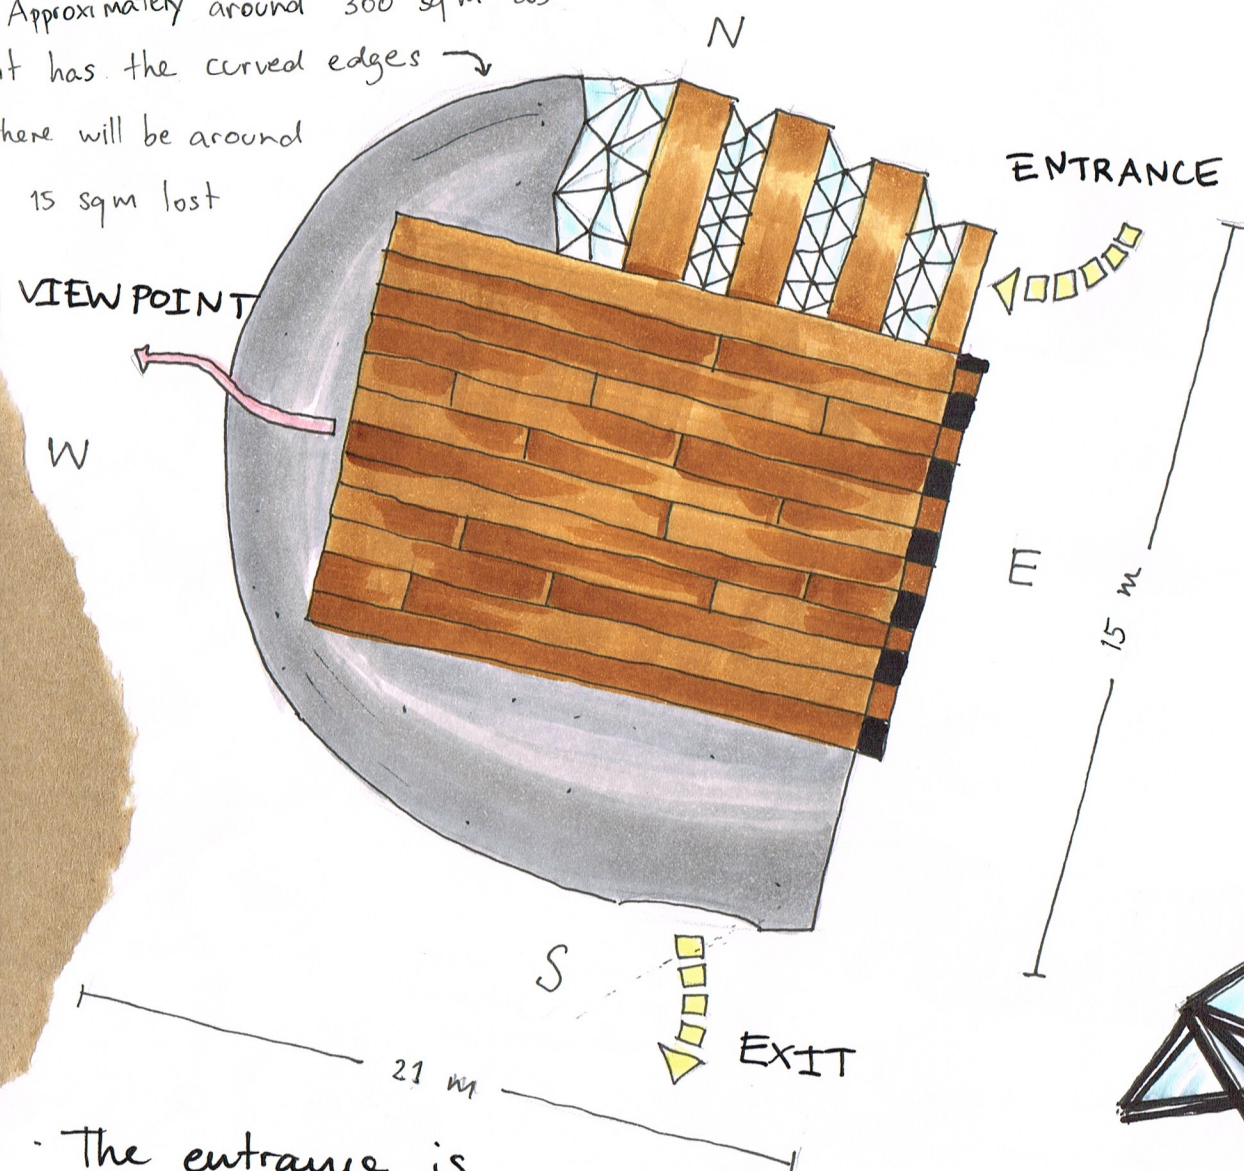 Approximately around 300 sqm
t has the curved edges
here will be around
15 sqm lost
N
ENTRANCE
VIEWPOINT
W
E
15 m
S
EXIT
21 m
- The entrance is